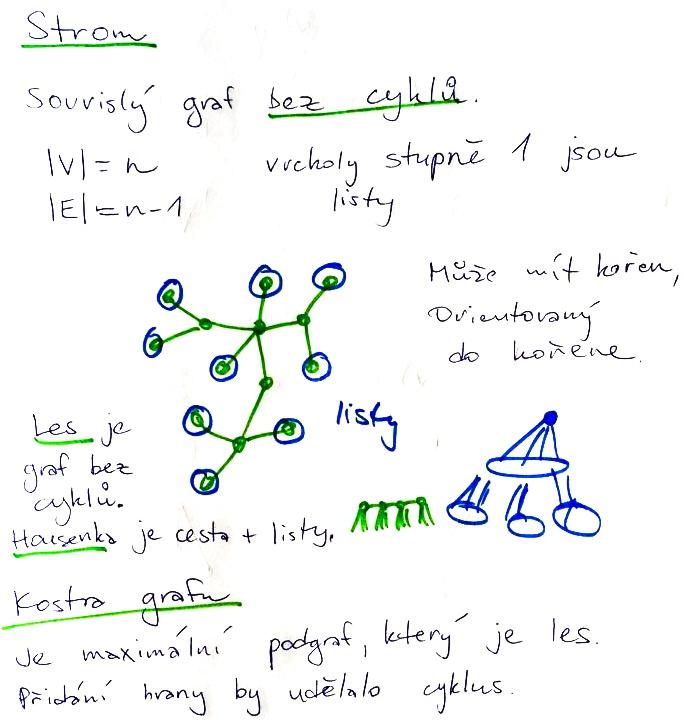 Strom
Souvislý graf bez cyklů.
|V| = n
|E| = n-1
vrcholy stupně 1 jsou
listy
Může mít kořen,
Orientovaný
do kořene.
listy
Les je
graf bez
cyklů.
Housenka je cesta + listy.
Kostra grafu
Je maximální podgraf, který je les.
Přidání hrany by udělalo cyklus.